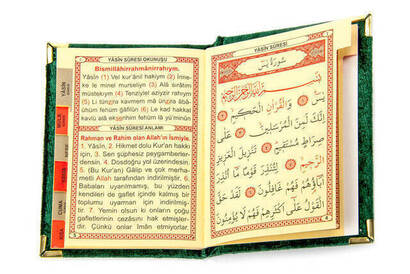 YÂSÎN SÛRESİ OKUNUŞU
Bismillâhirrahmânirrahıym.
Yâsîn (1) Vel kur'ânil hakiym (2) İnne-
ke le minel murseliyn (3) Alâ sırâtım
müstekıym (4) Tenziylel aziyzir rahıym
(5) Li tünzira kavmem mâ ünzira âbâ-
ühüm fehüm ğâfilûn (6) Le kad hakkal
kavlü alâ ekserihim fehüm lâ yü'minûn
YÂSÎN SÛRESİ ANLAMI
Rahman ve Rahim olan Allah'ın ismiyle.
1. Yâsîn, 2. Hikmet dolu Kur'an hakkı
için, 3. Sen şüphesiz peygamberler-
densin. 4. Dosdoğru yol üzerindesin.
5. (Bu Kur'an) Gâlip ve çok merha-
metli Allah tarafından indirilmiştir. 6.
Babaları uyarılmamış, bu yüzden
kendileri de gaflet içinde kalmış bir
toplumu uyarman için indirilmiş-
dir. 7. Yemin olsun ki onların çoğu
gafletlerinin cezasını hak etmişler-
dir. Çünkü onlar iman etmiyorlar.
YÂSÎN
CUMA
KISA
YÂSÎN SÛRESİ
سُورَةُ يٰسٓ
بِسْمِ اللّٰهِ الرَّحْمٰنِ الرَّحِيمِ
يٰسٓ وَالْقُرْاٰنِ الْحَكِيمِ
اِنَّكَ لَمِنَ الْمُرْسَلِينَ عَلٰى
صِرَاطٍ مُسْتَقِيمٍ تَنْزِيلَ الْعَزِيزِ
الرَّحِيمِ لِتُنْذِرَ قَوْمًا مَٓا اُنْذِرَ
اٰبَٓاؤُ۬هُمْ فَهُمْ غَافِلُونَ لَقَدْ حَقَّ
الْقَوْلُ عَلٰٓى اَكْثَرِهِمْ فَهُمْ لَا يُؤْمِنُونَ